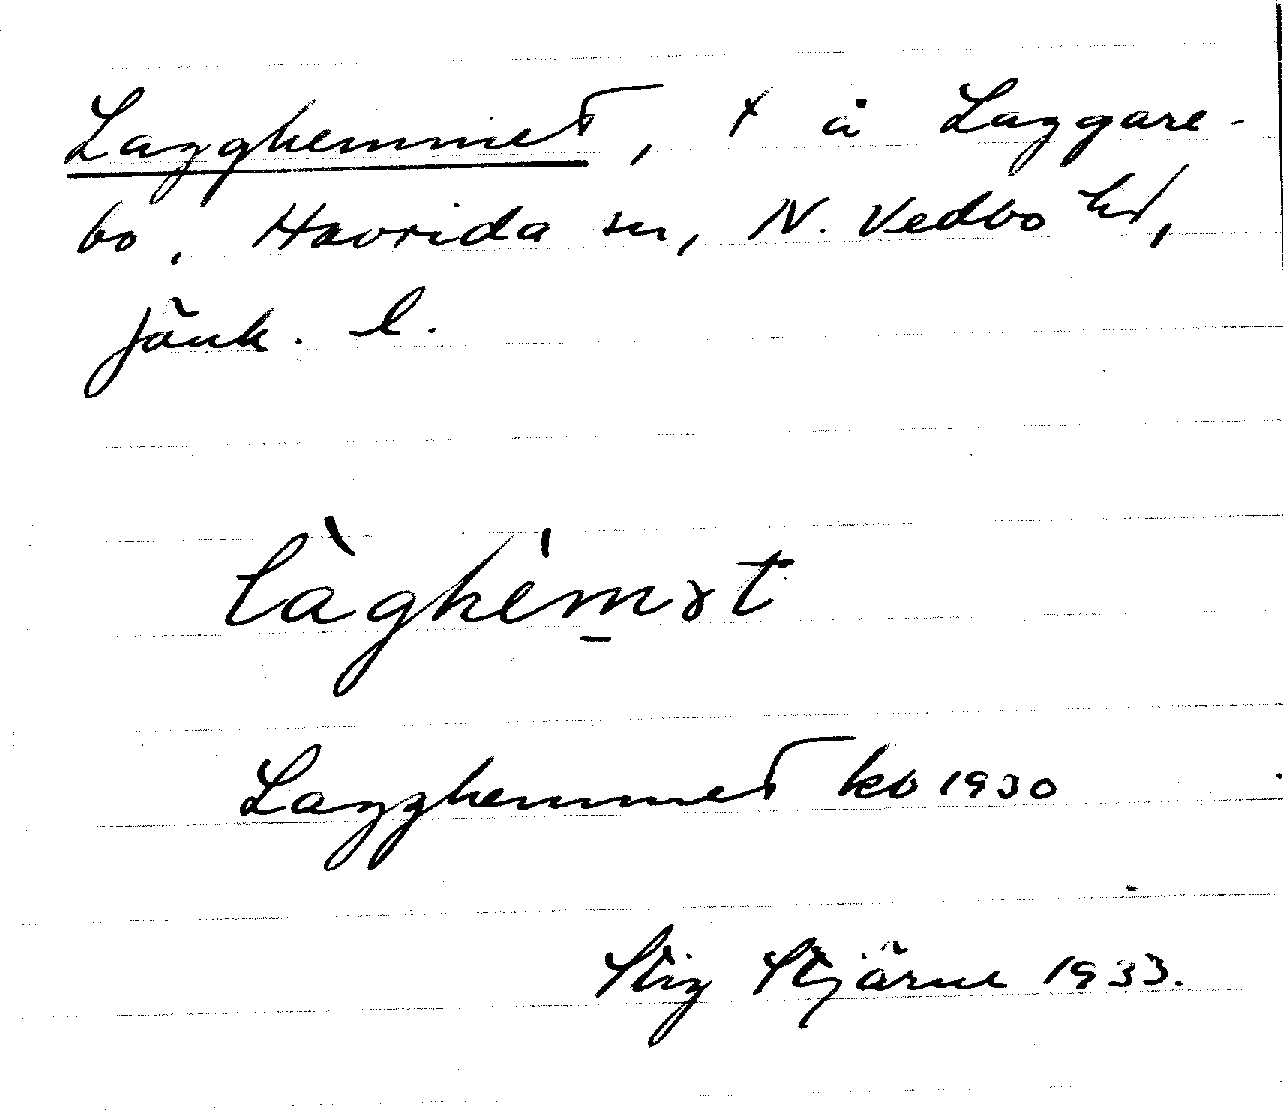 Lagghemmet, t å Laggare-
bo, Haurida sn, N. Vedbo hd,
Jönk. l.
làghèm̲ət
Lagghemmet kb 1930
Stig Stjärne 1933.